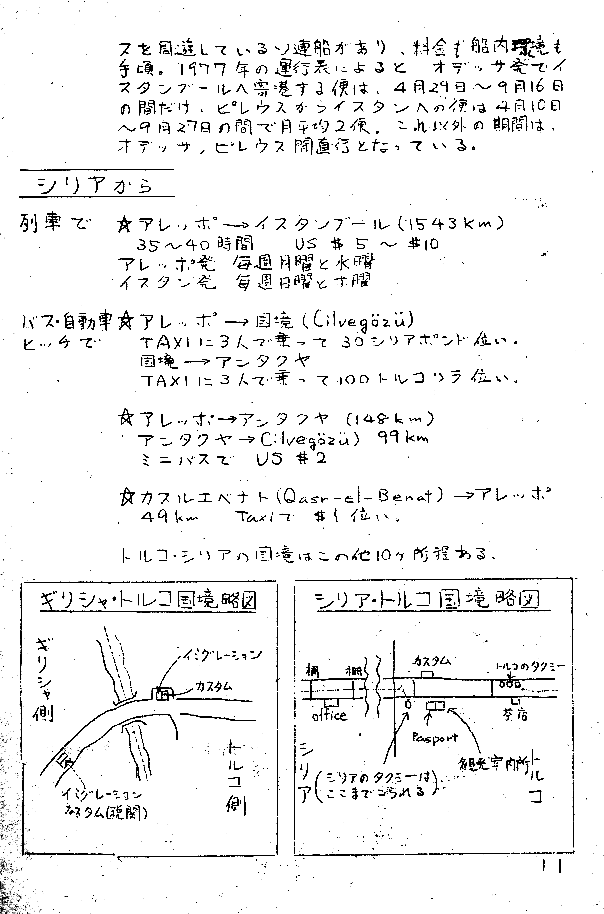 スを周遊しているソ連船があり、料金も船内環境も
手頃。1977年の運行表によると オデッサ発でイ
スタンブールへ寄港する便は、4月29日〜9月16日
の間だけ、ピレウスからイスタンへの便は4月10日
〜9月27日の間で月平均2便。これ以外の期間は、
オデッサ、ピレウス間直行となっている。
シリアから
列車で ☆アレッポ→イスタンブール(1543km)
35〜40時間 US $5〜$10
アレッポ発 毎週月曜と水曜
イスタン発 毎週日曜と木曜
バス・自動車 ☆アレッポ→国境(Cilvegözü)
ヒッチで TAXIに3人で乗って30シリアポンド位い。
国境→アンタクヤ
TAXIに3人で乗って100トルコリラ位い。
☆アレッポ→アンタクヤ (148km)
アンタクヤ→Cilvegözü) 99km
ミニバスで US $2
☆カスルエベナト(Qasr-el-Benat)→アレッポ
49km Taxiで $1位い。
トルコ・シリアの国境はこの他10ヶ所程ある。
ギリシャ・トルコ国境略図
ギリシャ側
イミグレーション
カスタム
トルコ側
イミグレーション
カスタム(税関)
シリア・トルコ国境略図
柵
柵
カスタム
トルコのタクシー
office
Passport
茶店
観光案内所
シリア
(シリアのタクシーは
ここまで来られる)
トルコ
11